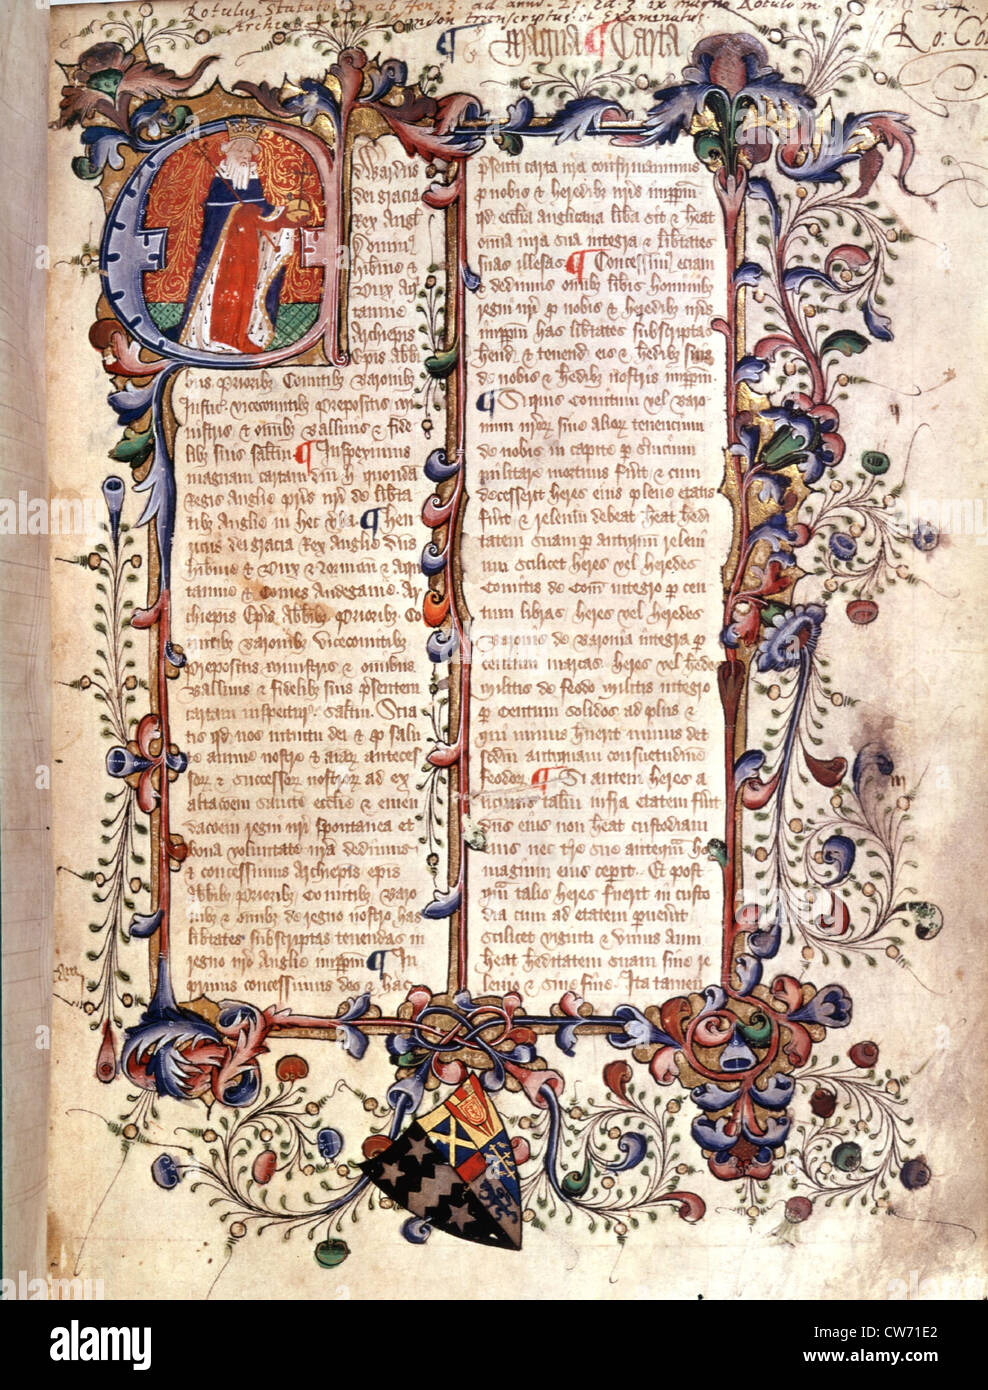 Rotulus Statutorum ab Hen: 3. ad ann. 21. Ed: 3 ex magno Rotulo in
London transcriptus et Examinatus.
Magna Carta
dWardus
dei gracia
Rex Angl
Domin9
hibnie &
Dux Aq
tannie
Archiepis
Epis Abb
biis Prioriby Comitiby Baroniby
Justic. vicecomitiby Prepositis mi
nistris & omiby Ballivis & fide
liby suis saltm ¶ Inspeximus
magnam cartam dni h quonda
Regis Anglie pris nri de libta
tiby Anglie in hec vba ¶ hen
ricus dei gracia Rex Anglie dns
hibnie & Dux Norman & Aqui
tannie & Comes Andegavie Ar
chiepis Epis Abbiby Prioriby Co
mitiby Baroniby vicecomitiby
Prepositis ministris & omibus
Ballivis & fidelib suis psentem
cartam inspectur saltm Scia
tis qd nos intuitu dei & p salu
te anime nostre & aiar anteces
sor & successor nostror ad ex
altacoem sancte ecclie & emen
dacoem regni nri spontanea et
bona voluntate nra dedimus
& concessimus Archiepis epis
Abbiby Prioriby Comitiby Baro
niby & omiby de regno nostro has
libtates subscriptas tenendas in
regno nro Anglie imppm ¶ In
primis concessimus deo & hac
psenti carta nra confirmavimus
p nobis & heredib nris imppm
qd ecclia anglicana liba sit & heat
omia iura sua integra & libtates
suas illesas ¶ Concessim9 eciam
& dedimus omiby libis hominiby
regni nri p nobis & herediby nris
imppm has libtates subscriptas
hend & tenend eis & hediby suis
de nobis & hediby nostris imppm
¶ Si quis Comitum vel Baro
num nror sive alior tenencium
de nobis in capite p servicium
militare mortuus fuit & cum
decesserit heres eius plene etatis
fuit & relevium debeat heat hedi
tatem suam p antiquum relevi
um scilicet heres vel heredes
Comitis de Com integro p cen
tum libras heres vel heredes
Baronis de Baronia integra p
centum marcas heres vel hedes
militis de feodo militis integro
p centum solidos ad plus &
qui minus huerit minus det
scdm antiquam consuetudinem
feodor ¶ Si autem heres a
licuius talium infra etatem fuit
dns eius non heat custodiam
eius nec tre sue antequam ho
magium eius ceperit Et post
quam talis heres fuerit in custo
dia cum ad etatem pvenit
scilicet viginti & unius anni
heat heditatem suam sine re
levio & sine fine Ita tamen
alamy
Image ID: CW71E2
www.alamy.com